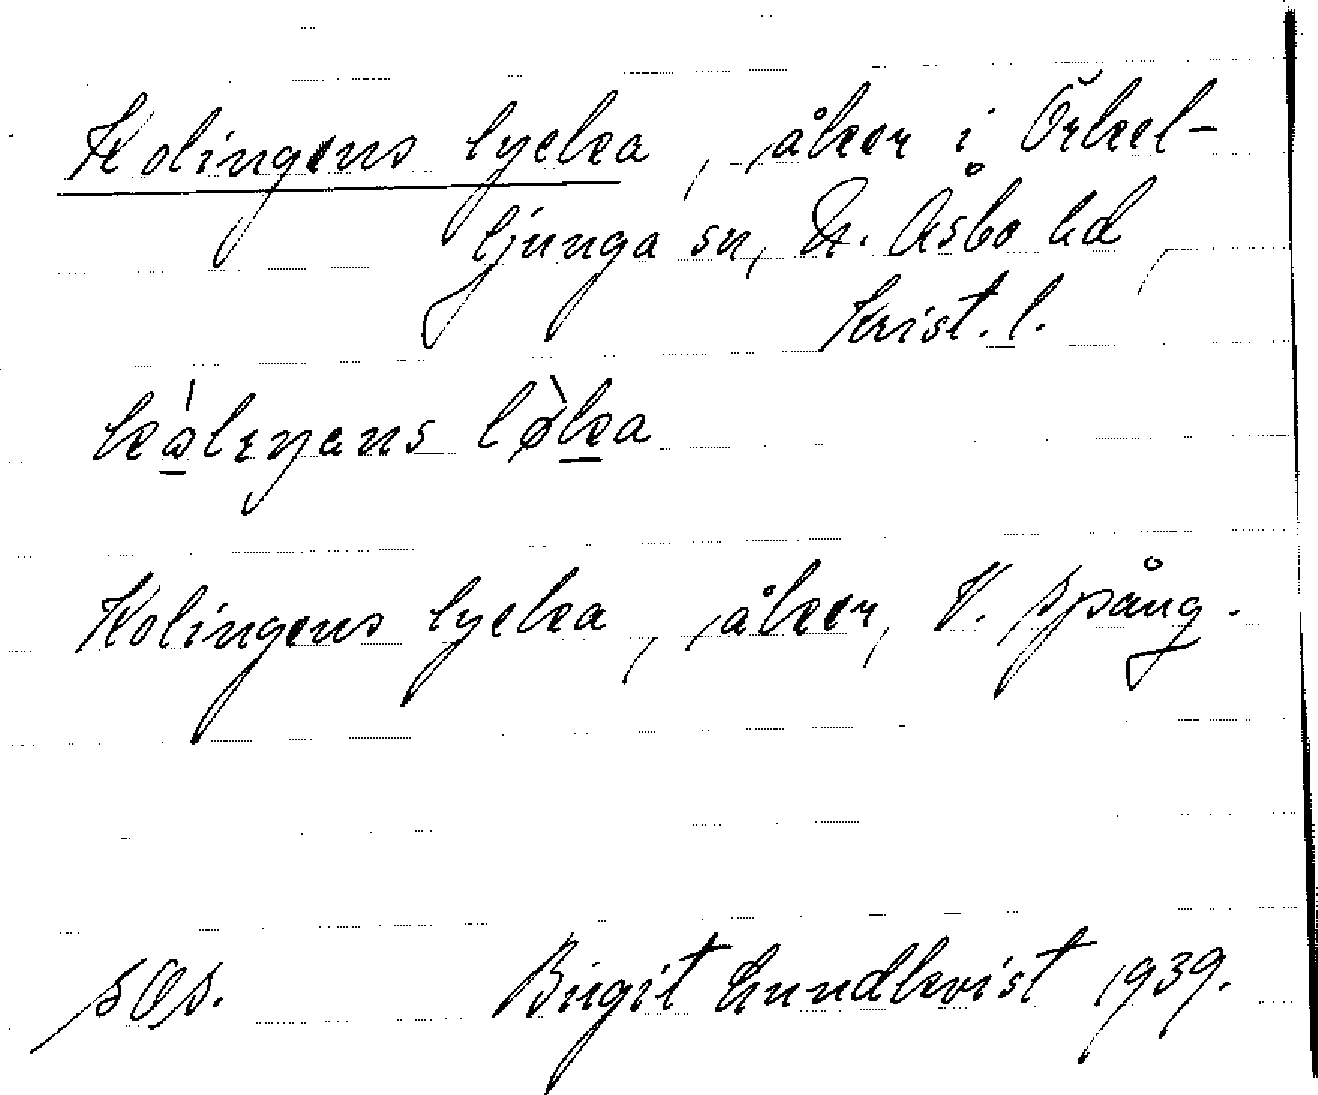 Kolingens lycka, åker i Örkel-
ljunga sn, N. Åsbo hd
Krist. l.
Kolingens lycka, åker, V. Spång.
Birgit Lundkvist 1939.